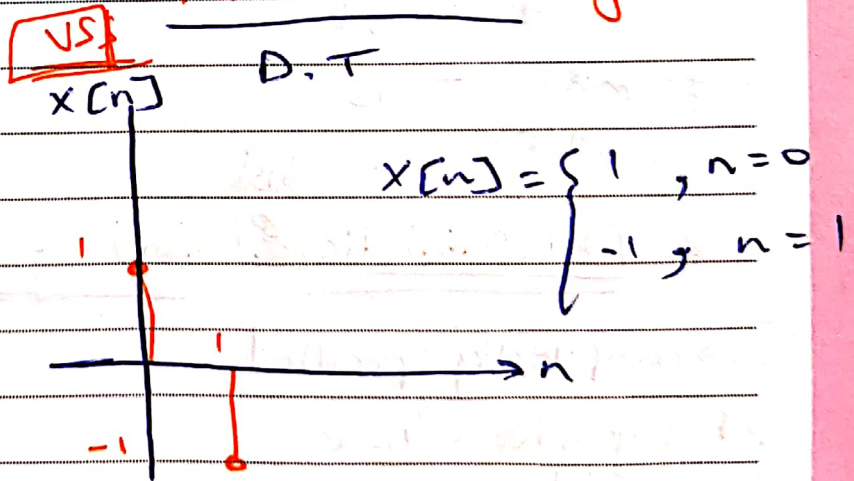 VS
D.T
x[n]
x[n] = { 1 , n = 0
-1 , n = 1
1
1
n
-1